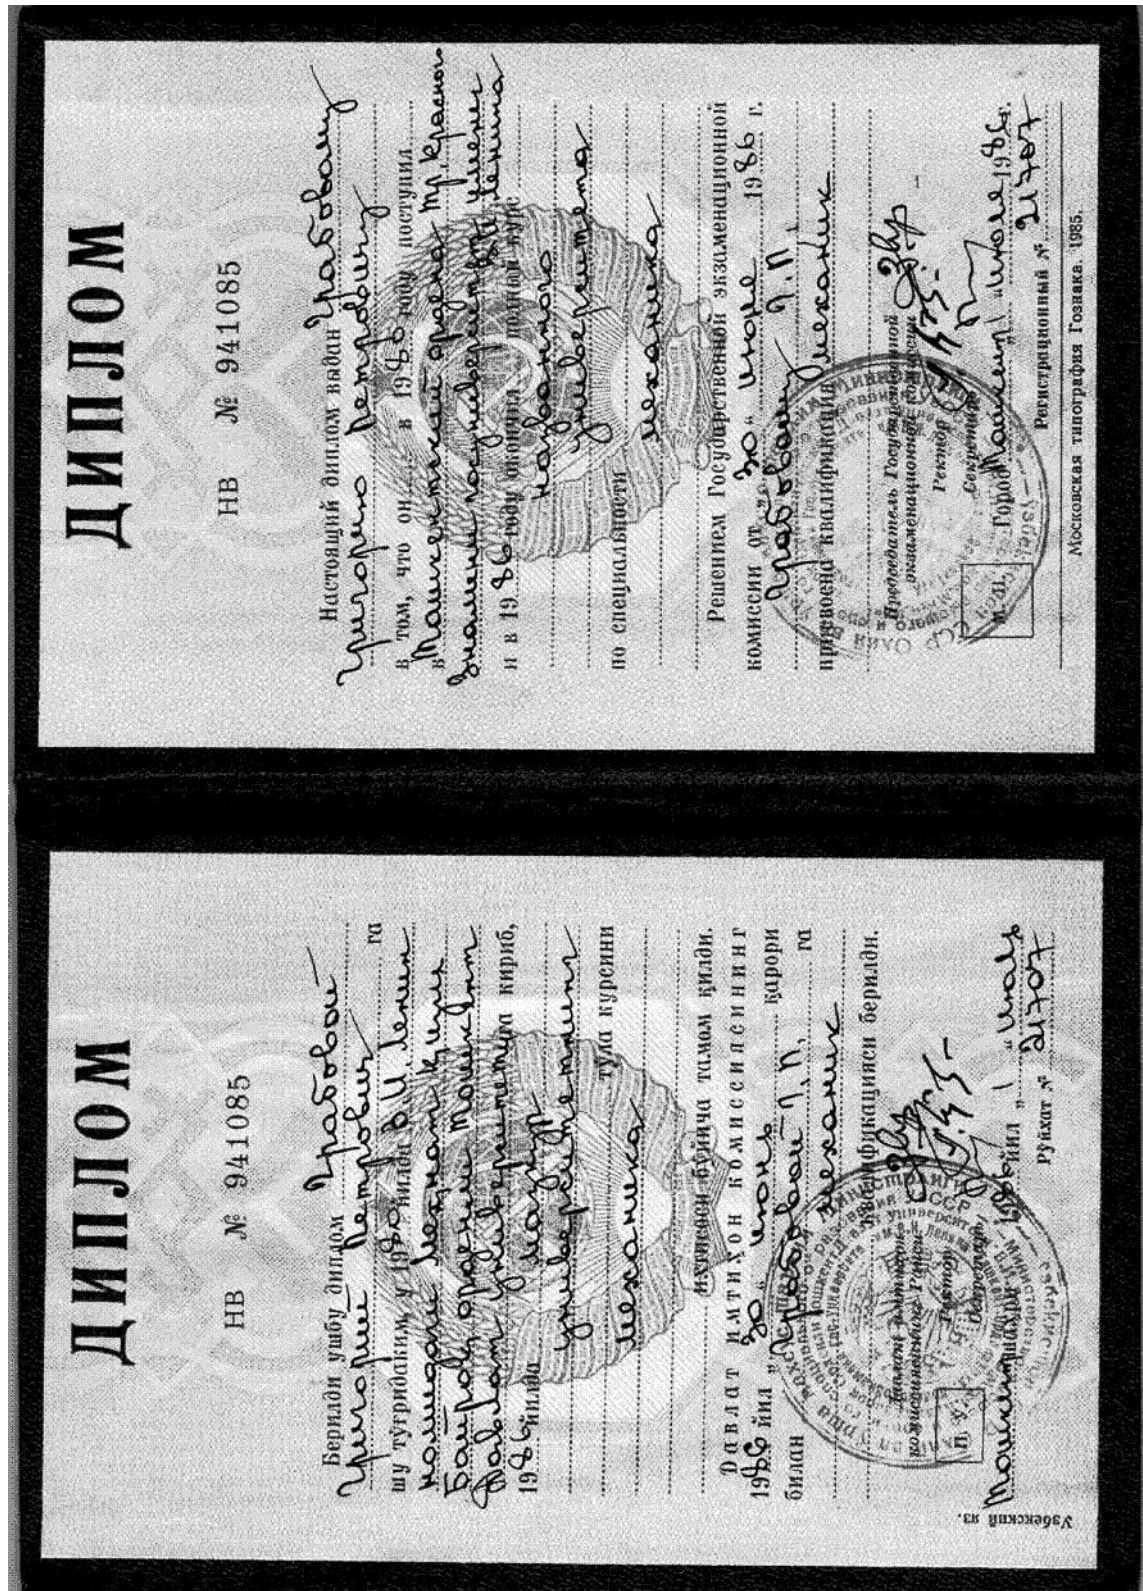 ДИПЛОМ
НВ № 941085
Берилди ушбу диплом Грабовой
Григорий Петрович га
шу тўғридаким, у 1980 йилда В.И.Ленин
номидаги Меҳнат Қизил
Байроқ орденли Тошкент
Давлат университетига кириб,
1986 йилда мазкур
университетнинг
тўла курсини
механика
ихтисоси бўйича тамом қилди.
Давлат имтиҳон комиссиясининг
1986 йил "30" июнь қарори
билан Грабовой Г.П. га
механик
квалификацияси берилди.
Давлат имтиҳон
комиссиясининг Раиси
Ректор
Секретарь
М. Ў.
Тошкент шаҳри 1986 йил " 1 " июль
Рўйхат № 21707
Узбекский яз.
ДИПЛОМ
НВ № 941085
Настоящий диплом выдан Грабовому
Григорию Петровичу
в том, что он в 1980 году поступил
в Ташкентский ордена Тр. Красного
Знамени госуниверситет имени
В.И.Ленина
и в 1986 году окончил полный курс
названного
университета
по специальности
механика
Решением Государственной экзаменационной
комиссии от "30" июня 1986 г.
Грабовому Г.П.
присвоена квалификация механик
Председатель Государственной
экзаменационной комиссии
Ректор
Секретарь
М. П. Город Ташкент " 1 " июля 1986 г.
Регистрационный № 21707
Московская типография Гознака. 1985.